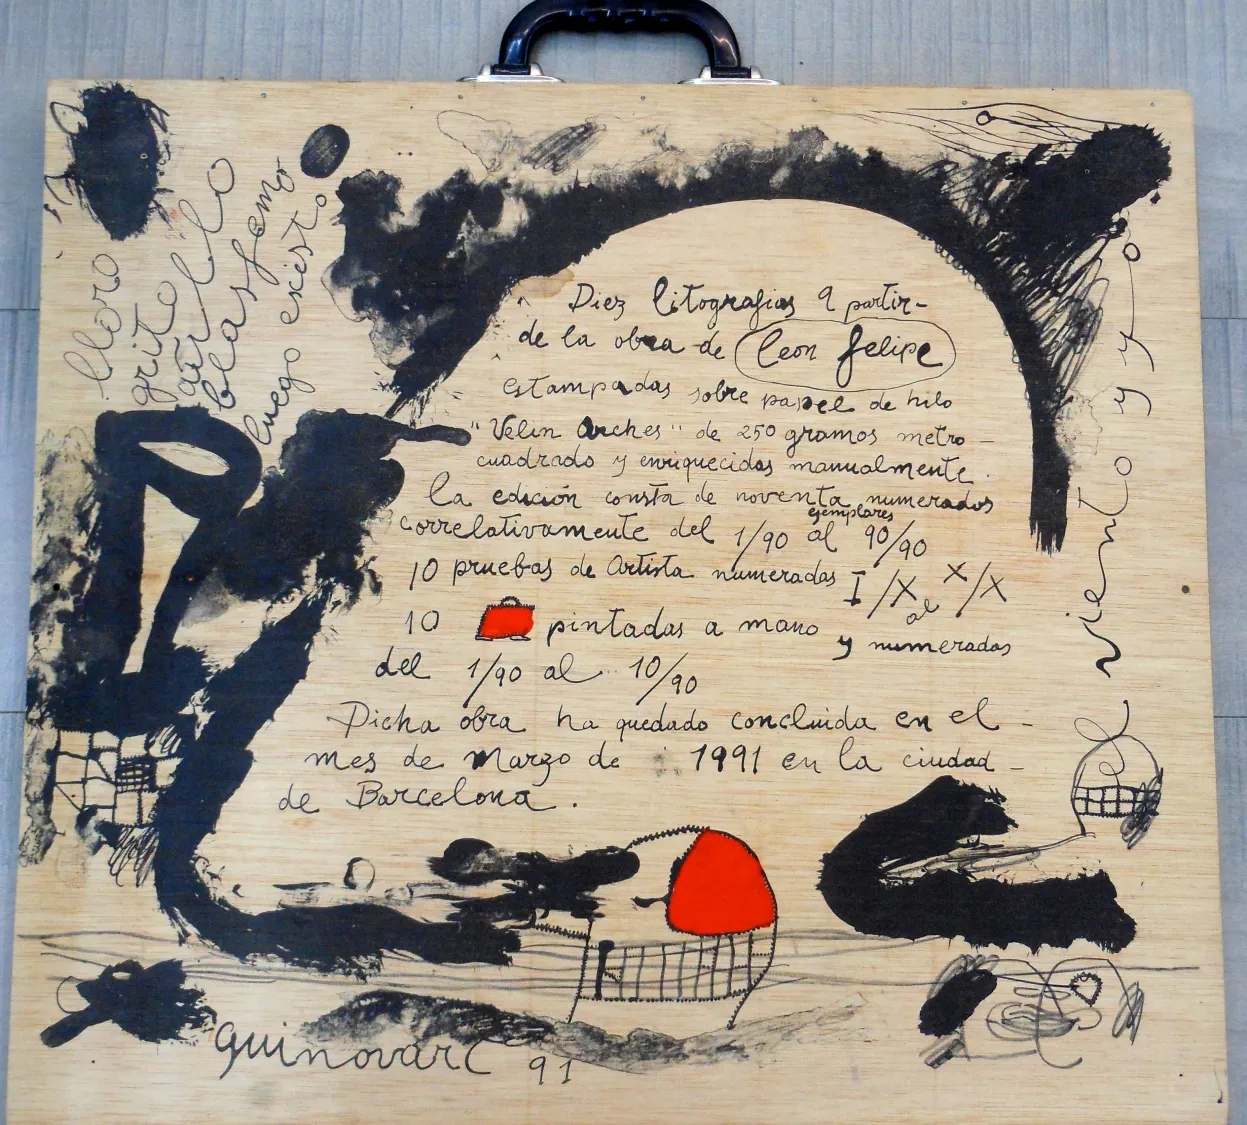 lloro
grito
aúllo
blasfemo
luego existo
Diez litografias a partir-
de la obra de Leon felipe
estampadas sobre papel de hilo
"Velin Arches" de 250 gramos metro-
cuadrado y enriquecidas manualmente.
la edición consta de noventa numerados
ejemplares
correlativamente del 1/90 al 90/90
10 pruebas de Artista numeradas I/X al X/X
10 pintadas a mano y numeradas
del 1/90 al 10/90
Dicha obra ha quedado concluida en el -
mes de Marzo de 1991 en la ciudad -
de Barcelona.
el viento y yo
guinovart 91